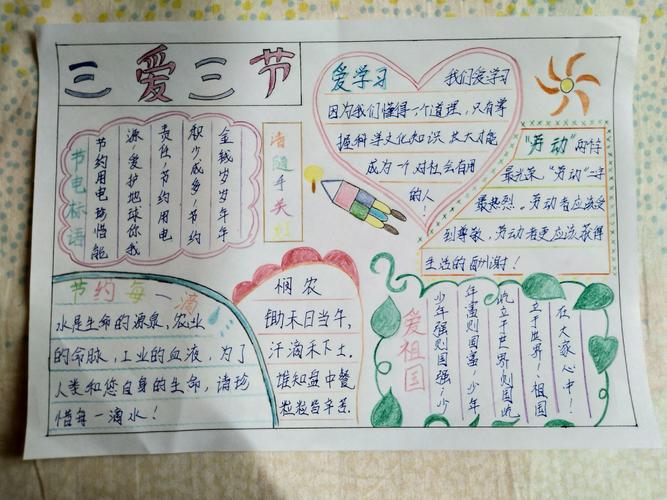 三爱三节
节电标语
节约用电珍惜能
源,爱护地球你我
责任!节约用电
积少成多!节约
金钱岁岁年年
请随手关灯
爱学习 我们爱学习
因为我们懂得一个道理,只有掌
握科学文化知识 长大才能
成为一个对社会有用
的人!
"劳动"
最光荣 "劳动"二字
最热烈。劳动者应该受
到尊敬,劳动者更应该获得
生活的酬谢!
节约每一滴
水是生命的源泉,农业
的命脉,工业的血液,为了
人类和您自身的生命,请珍
惜每一滴水!
悯农
锄禾日当午,
汗滴禾下土.
谁知盘中餐
粒粒皆辛苦.
爱祖国
少年强则国强!少
年富则国富 少年
屹立于世界则国屹
立于世界!祖国
在大家心中!